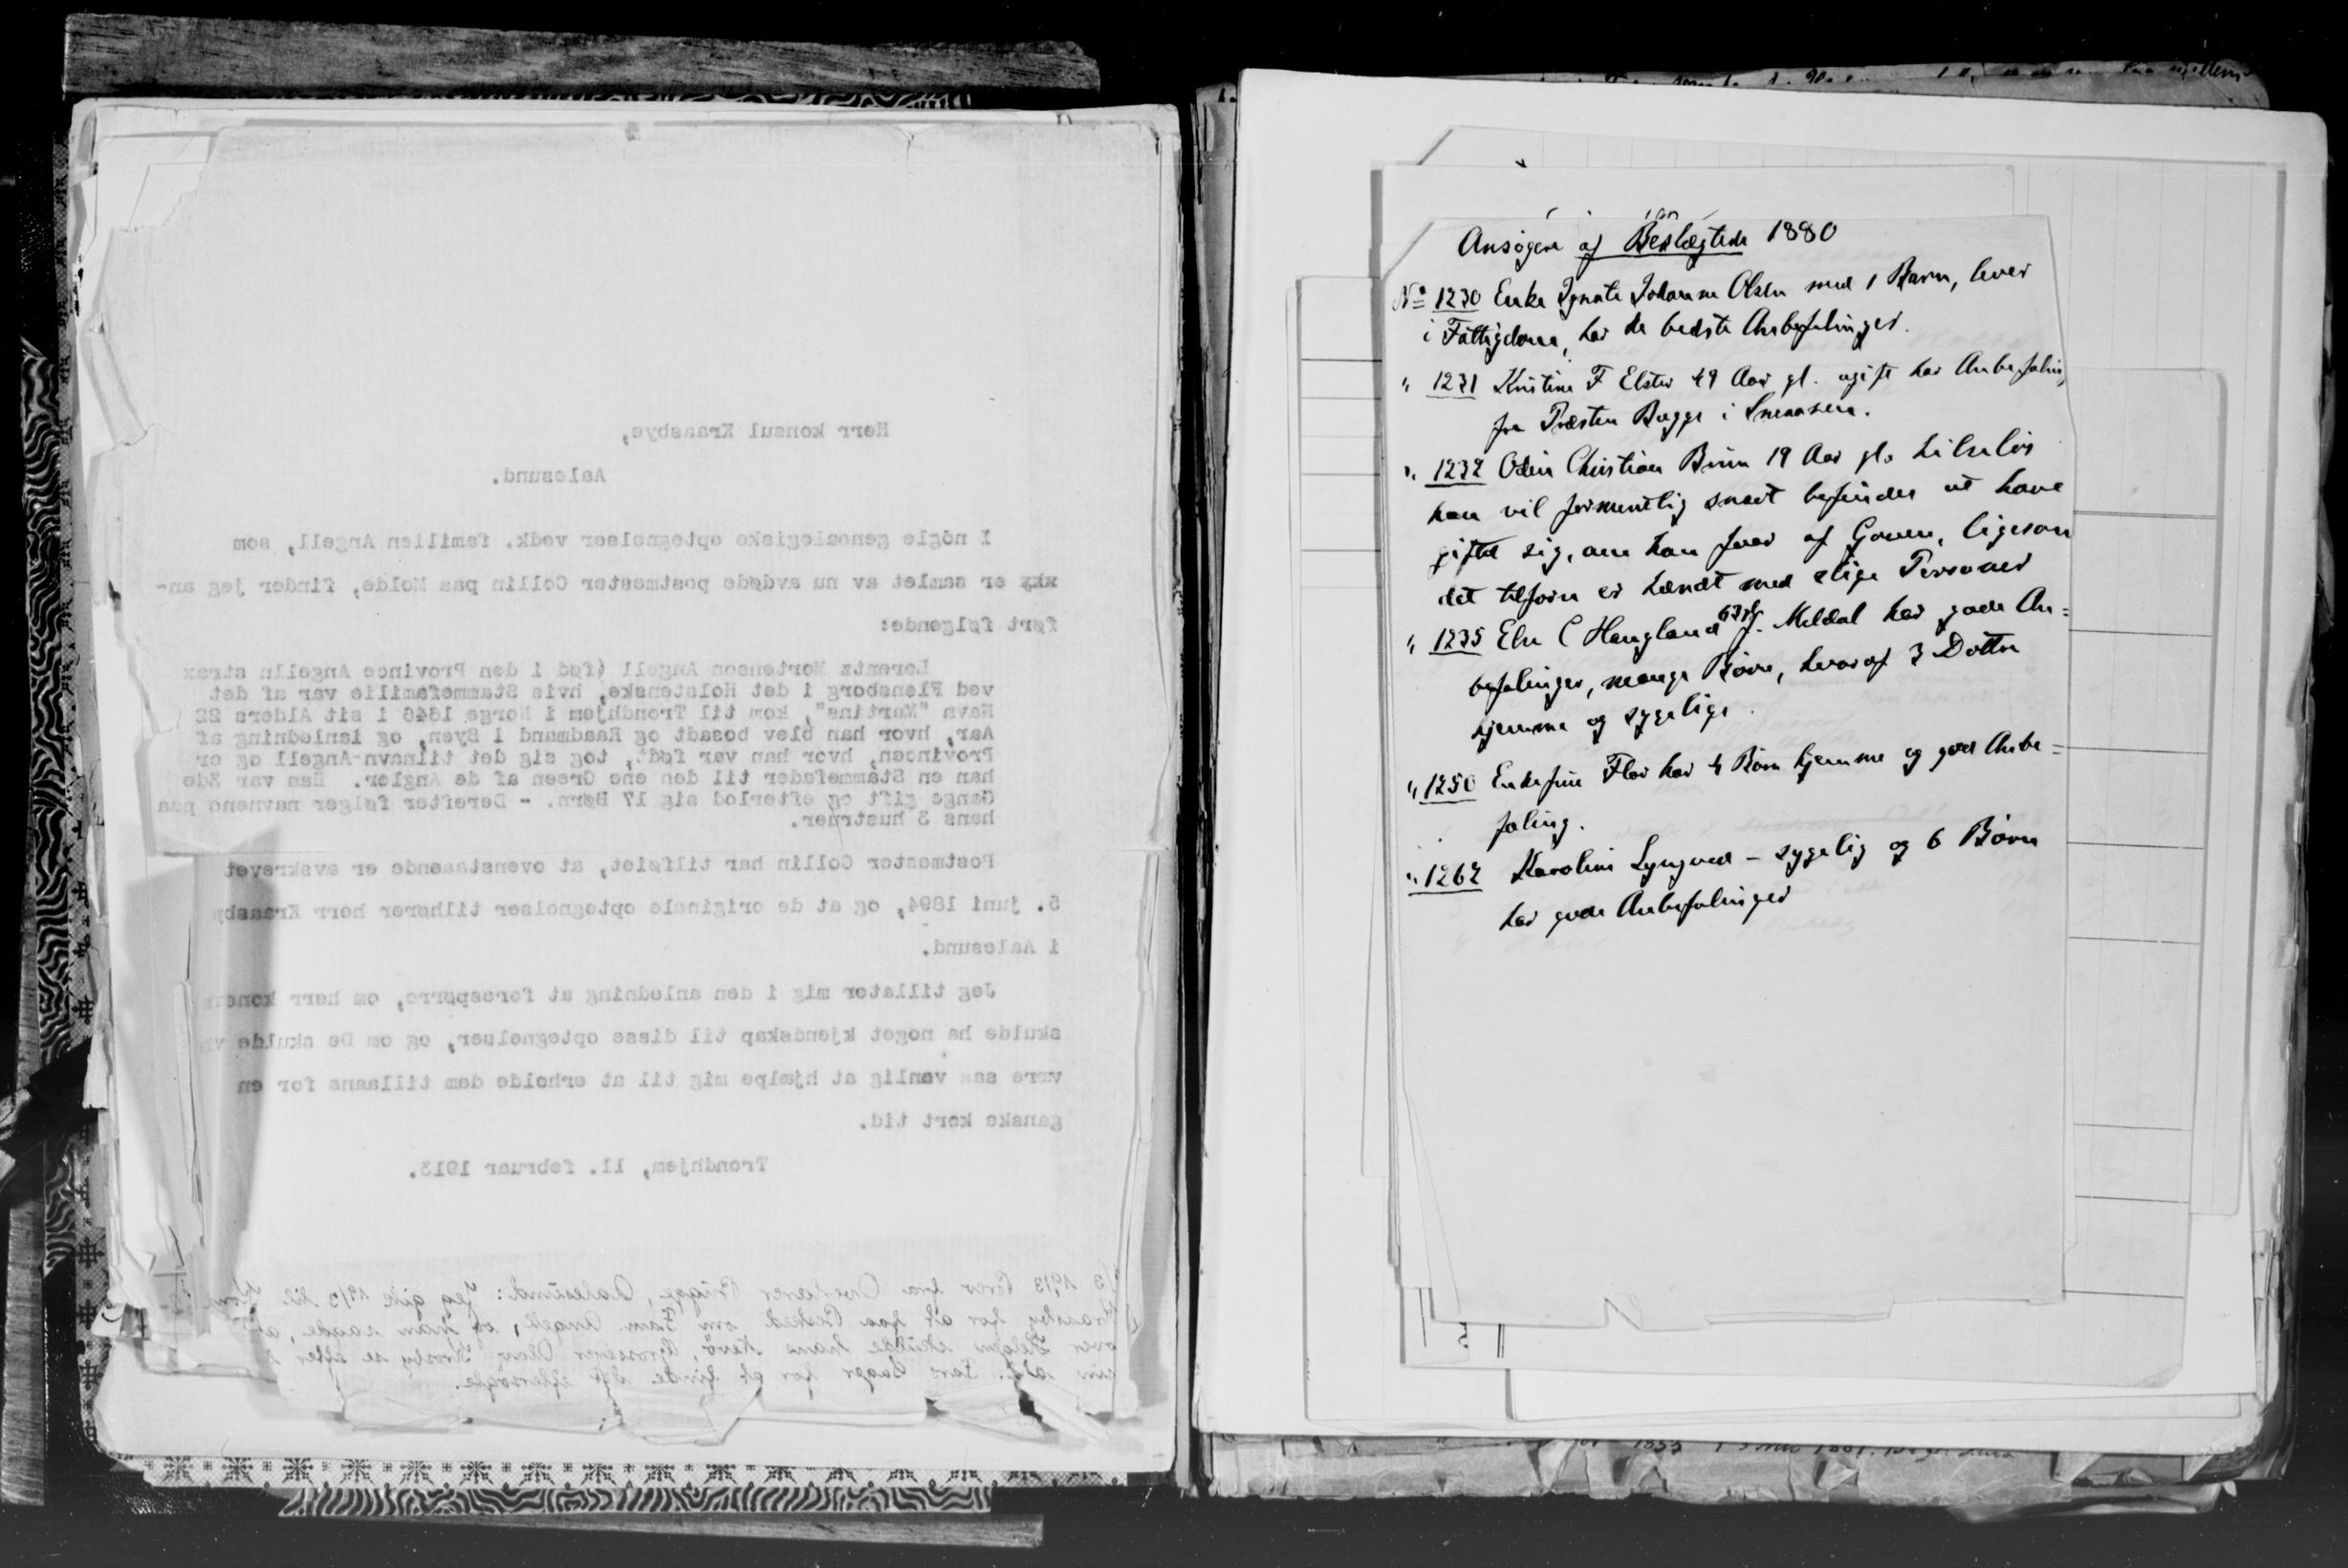 Herr konsul Kraasbye,
Aalesund.
I nögle genealogiske optegnelser vedk. familien Angell, som
er samlet av nu avdøde postmester Collin paa Molde, finder jeg an-
ført følgende:
Lorentz Mortenson Angell (fød i den Province Angelln strax
ved Flensborg i det Holstenske, hvis Stammefamilie var af det
Navn "Martins", kom til Trondhjem i Norge 1646 i sit Alders 22
Aar, hvor han blev bosadt og Raadmand i Byen, og ianledning af
Provincen, hvor han var født, tog sig det tilnavn Angell og er
han en Stammefader til den ene Green af de Angler. Han var 3de
Gange gift og efterlod sig 17 Børn. - Derefter følger navnene paa
hans 3 hustruer.
Postmester Collin har tilføiet, at ovenstaaende er avskrevet
6. juni 1894, og at de originale optegnelser tilhører herr Kraasby
i Aalesund.
Jeg tillater mig i den anledning at forespørre, om herr
skulde ha noget kjendskap til disse optegnelser, og om De skulde
være saa venlig at hjælpe mig til at erholde dem tillaans for en
ganske kort tid.
Trondhjem, 11. februar 1913.
1913 Brev fra Overlærer Brigge, Aalesund: Jeg gik 19/3 til
Kraasby for at faa Besked om Fam. Angell, og han sagde, at
over Helgen skulde hans Grosserer Olav Krosby se efter
sin Fars Sager for at finde det eftersøgte.
Ansøgere af Beslægtede 1880
No 1230 Enke Johanna Olsen med 1 Barn, lever
i Fattigdom, har de bedste Anbefalinger.
" 1231 Kristine F Elster 49 Aar gl. ugift har Anbefaling
fra Præsten Bugge i Snaasen.
" 1232 Odin Christian Brun 19 Aar gl.
han vil formentlig snart befindes at have
giftet sig, om han faar af Gaven, ligesom
det tilforn er hændt med slige Personer
" 1235 Else C Haugland 63 Meldal har gode An=
befalinger, mange Børn, hvoraf 3 Døttre
hjemme og sygelige.
" 1250 Enkefru Flor har 4 Børn hjemme og god Anbe=
faling.
" 1262 Karoline Lyngved - sygelig og 6 Børn
har gode Anbefalinger